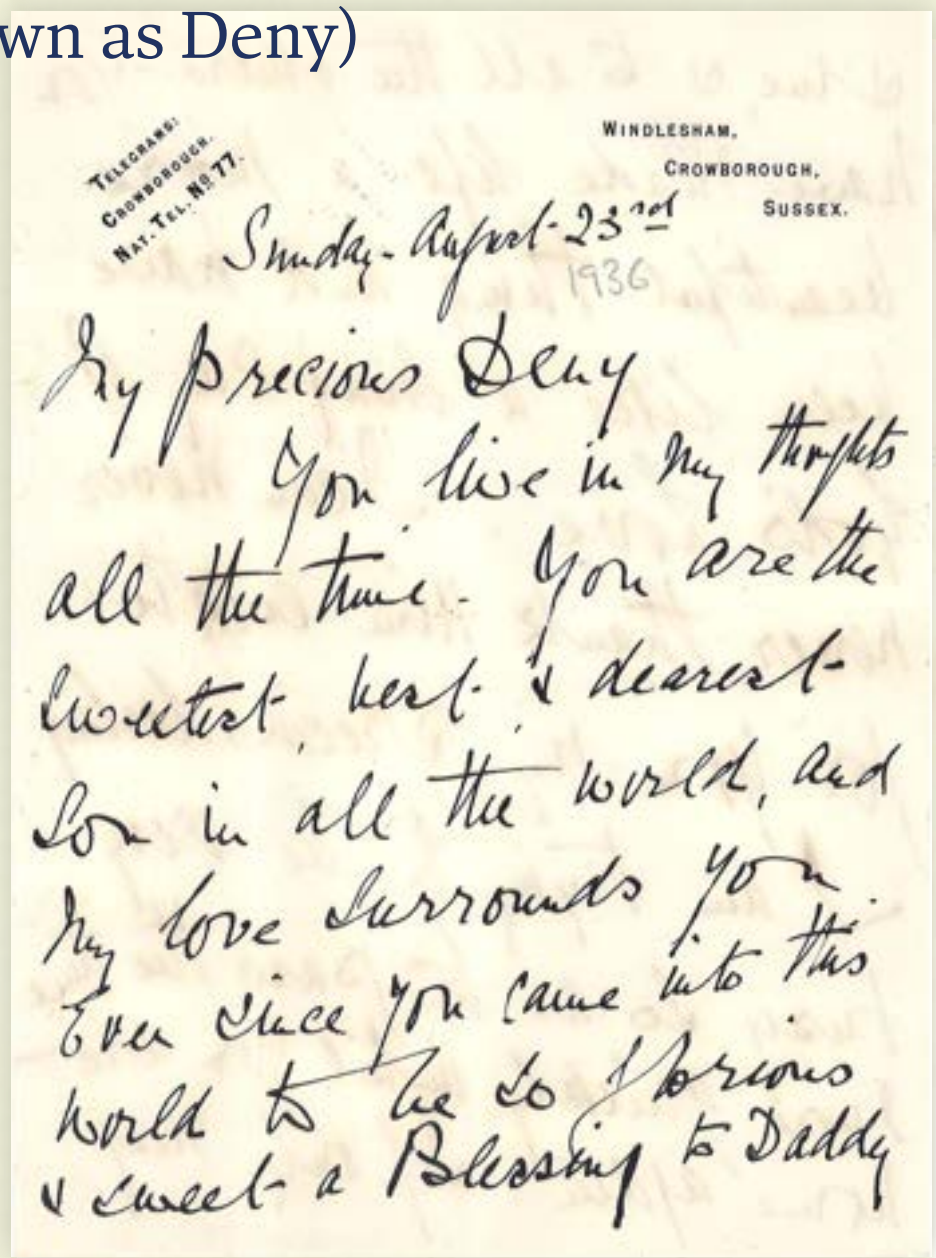 wn as Deny)
TELEGRAMS:
CROWBOROUGH.
NAT. TEL. Nº 77.
WINDLESHAM,
CROWBOROUGH,
SUSSEX.
Sunday - August - 23rd
1936
My precious Deny
You live in my thoughts
all the time. You are the
sweetest, best & dearest
son in all the world, and
my love surrounds you.
Ever since you came into this
world to be so glorious
& sweet a Blessing to Daddy